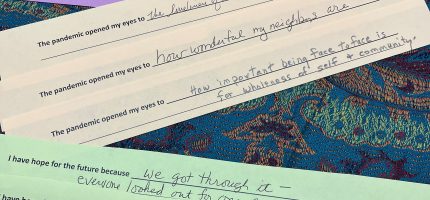 The pandemic opened my eyes to The loneliness of
The pandemic opened my eyes to how wonderful my neighbors are
The pandemic opened my eyes to How important being face to face is
for wholeness of self & community.
I have hope for the future because we got through it –
everyone looked out for one